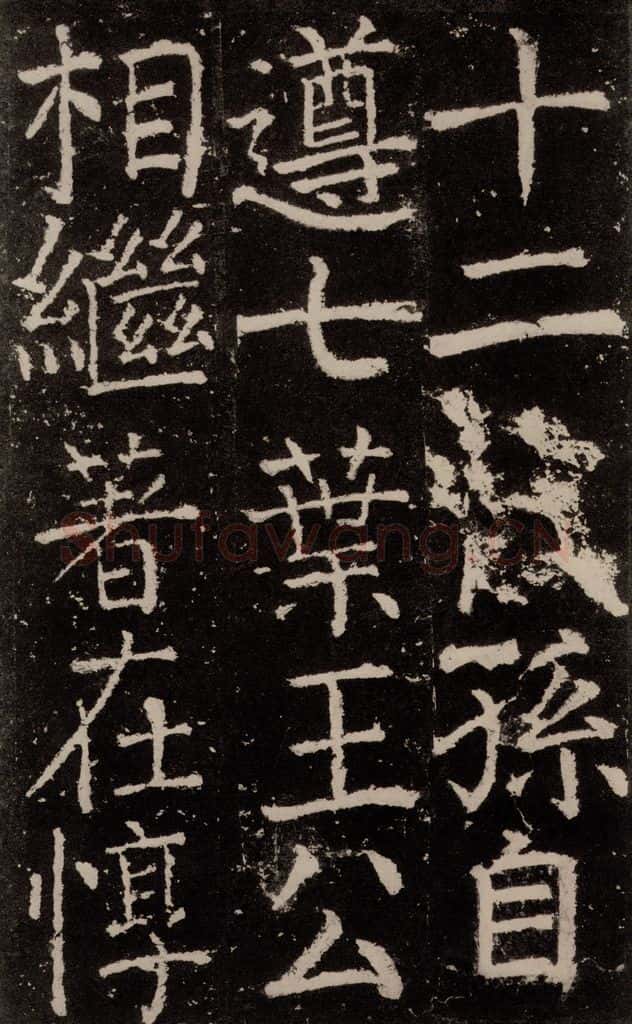 十二孫自
遵七葉王公
相繼著在惇
Shufawang.CN